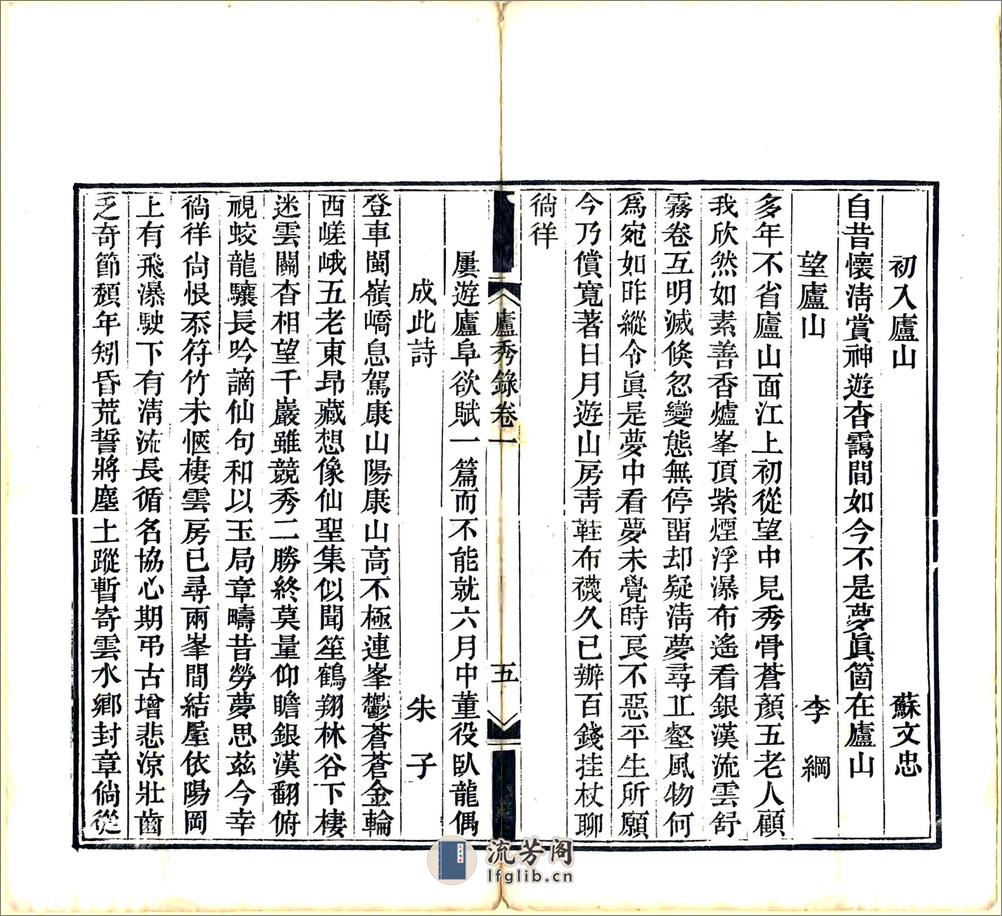 初入廬山 蘇文忠
自昔懷淸賞神遊杳靄間如今不是夢眞箇在廬山
望廬山 李綱
多年不省廬山面江上初從望中見秀骨蒼顏五老人顧
我欣然如素善香爐峯頂紫煙浮瀑布遙看銀漢流雲舒
霧卷互明滅倏忽變態無停畱却疑淸夢尋丘壑風物何
爲宛如昨縱令眞是夢中看夢未覺時良不惡平生所願
今乃償寬著日月遊山房靑鞋布襪久已辦百錢挂杖聊
徜徉
廬秀錄卷一 五
屢遊廬阜欲賦一篇而不能就六月中董役臥龍偶
成此詩 朱子
登車閩嶺嶠息駕康山陽康山高不極連峯鬱蒼蒼金輪
西嵯峨五老東昂藏想像仙聖集似聞笙鶴翔林谷下棲
迷雲關杳相望千巖雖競秀二勝終莫量仰瞻銀漢翻俯
視蛟龍驤長吟謫仙句和以玉局章疇昔勞夢思茲今幸
徜徉尙恨忝符竹未愜棲雲房已尋兩峯間結屋依陽岡
上有飛瀑駛下有淸流長循名協心期弔古增悲涼壯齒
乏奇節頹年矧昏荒誓將塵土蹤暫寄雲水鄉封章倘從
流芳阁
lfglib.cn